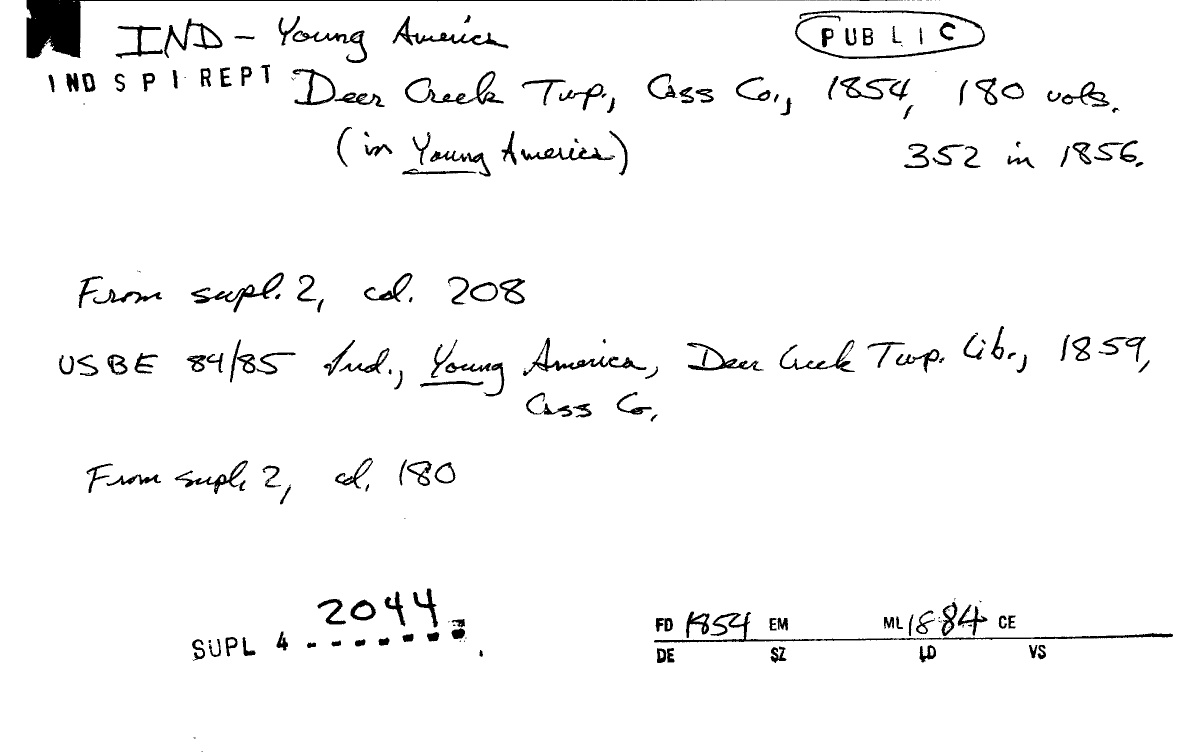 IND - Young America
PUBLIC
INDSPIREPT Deer Creek Twp., Cass Co., 1854, 180 vols.
(in Young America) 352 in 1856.
From supl. 2, col. 208
USBE 84/85 Ind., Young America, Deer Creek Twp. Lib., 1859,
Cass Co.
From supl. 2, col. 180
2044
SUPL 4
FD 1854 EM ML 1884 CE
DE SZ LD VS